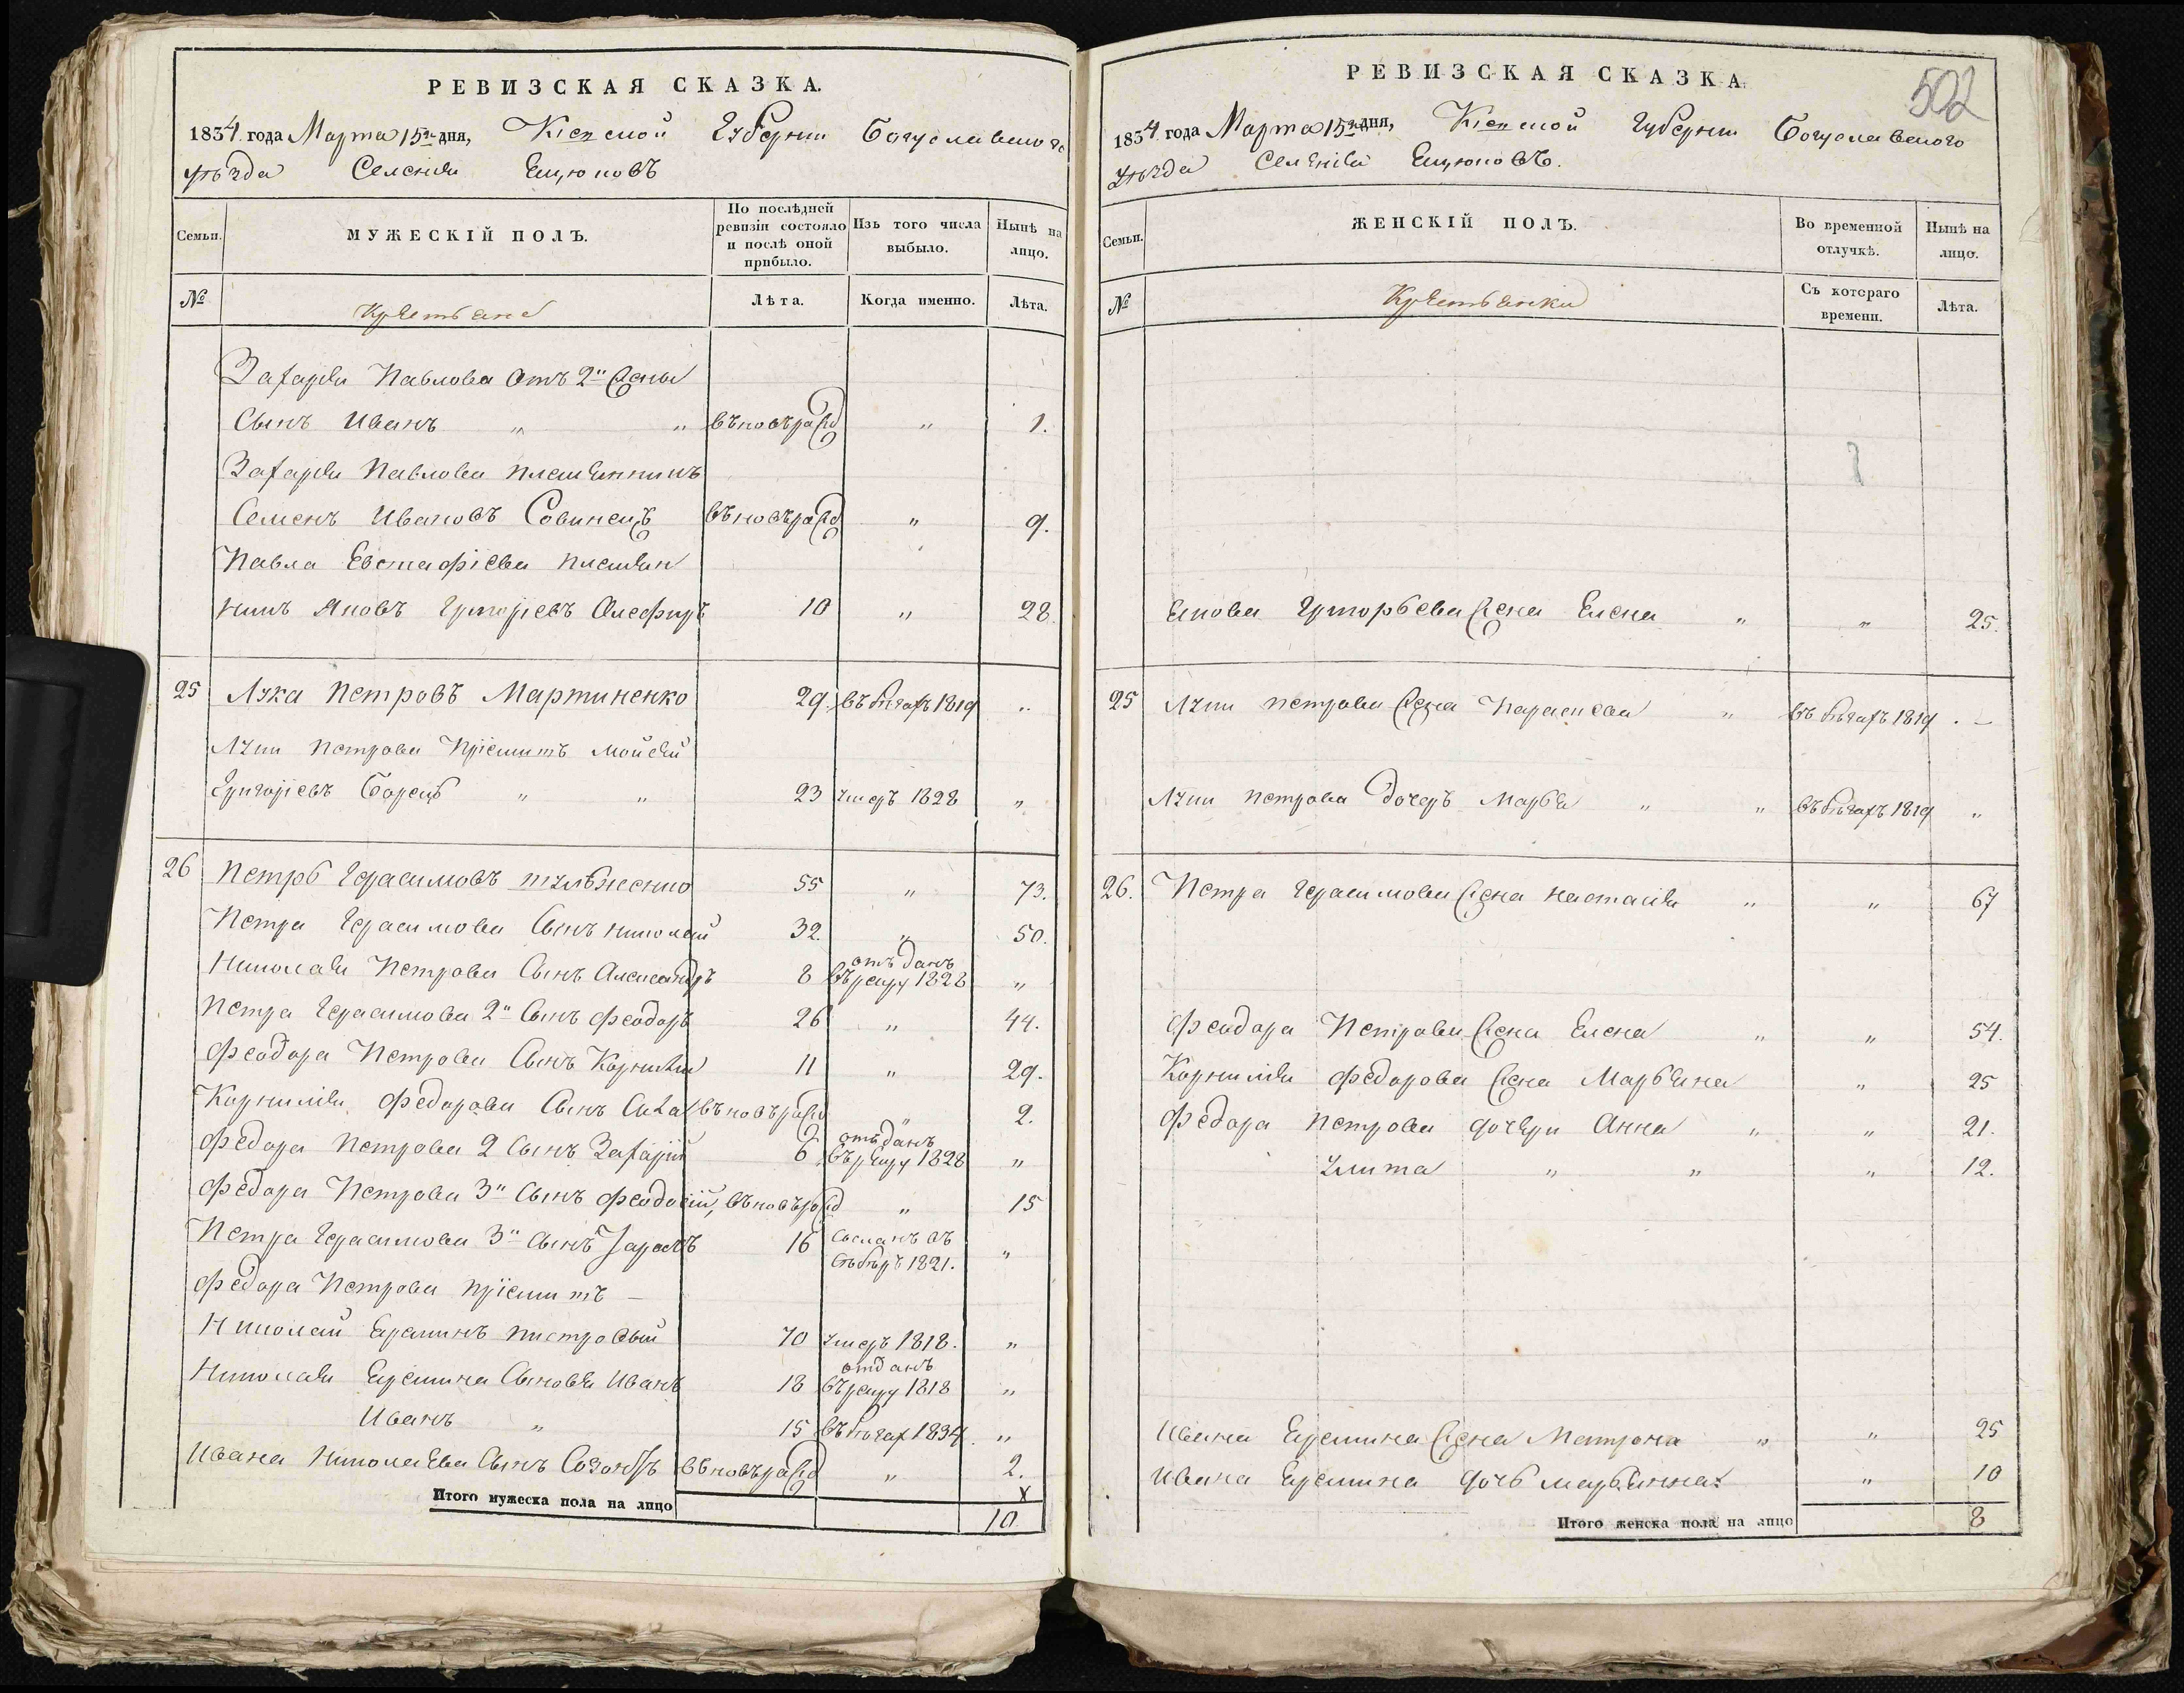 РЕВИЗСКАЯ СКАЗКА.
1834. года Марта 15го дня, Кіевской Губерніи Богуславского
уѣзда Селенія Ецюковъ
Семьи.
МУЖЕСКІЙ ПОЛЪ.
По послѣдней ревизіи состояло и послѣ оной прибыло.
Изъ того числа выбыло.
Нынѣ на лицо.
№
Крестьяне
Лѣта.
Когда именно.
Лѣта.
Захарія Павлова отъ 2й жены
Сынъ Иванъ " " вновьрожд " 1.
Захарія Павлова племянникъ
Семенъ Ивановъ Совинецъ вновьрожд " 9.
Павла Евстафіева племян
никъ Яковъ Григоріевъ Олефиръ 10 " 28.
25 Лука Петровъ Мартиненко 29. въ бѣгахъ 1819 "
Луки Петрова Пріемитъ Мойсей
Григоріевъ Борецъ " " 23 умеръ 1828 "
26 Петръ Герасимовъ 55 " 73.
Петра Герасимова Сынъ Николай 32. " 50.
Николая Петрова Сынъ Александръ 8 отъданъ въ рекру 1828 "
Петра Герасимова 2й Сынъ Феодоръ 26 " 44.
Феодора Петрова Сынъ Корнилій 11 " 29.
Корнилія Федорова Сынъ Сила вновьрожд " 2.
Федора Петрова 2 Сынъ Захарій 6 отъданъ въ рекру 1828 "
Федора Петрова 3й Сынъ Феодосій, вновьрожд " 15
Петра Герасимова 3й Сынъ Тарасъ 16 Сосланъ въ Сибѣрь 1821. "
Федора Петрова пріемитъ —
Николай Ереминъ 70 умеръ 1818. "
Николая Еремина Сыновья Иванъ 18 отданъ въ рекру 1818 "
Иванъ " 15 въ бѣгах 1834. "
Ивана Николаева Сынъ Созонтъ вновьрожд " 2.
х
Итого мужеска пола на лицо 10
502
РЕВИЗСКАЯ СКАЗКА
1834. года Марта 15го дня, Кіевской Губерніи Богуславского
уѣзда Селенія Ецюковъ.
Семьи.
ЖЕНСКІЙ ПОЛЪ.
Во временной отлучкѣ.
Нынѣ на лицо.
№
Крестьянки
Съ котораго времени.
Лѣта.
Якова Григорьева жена Елена " " 25.
25 Луки Петрова жена Параскева " въ бѣгахъ 1819 . –
Луки Петрова дочеръ Марья " " въ бѣгахъ 1819 "
26. Петра Герасимова жена Настасія " " 67
Феодора Петрова жена Елена " " 54.
Корнилія Федорова жена Марьяна " 25
Федора Петрова дочери Анна " " 21.
Улита " " " 12.
Ивана Еремина жена Матрона " " 25
Ивана Еремина дочь Марьянна " 10
Итого женска пола на лицо 8